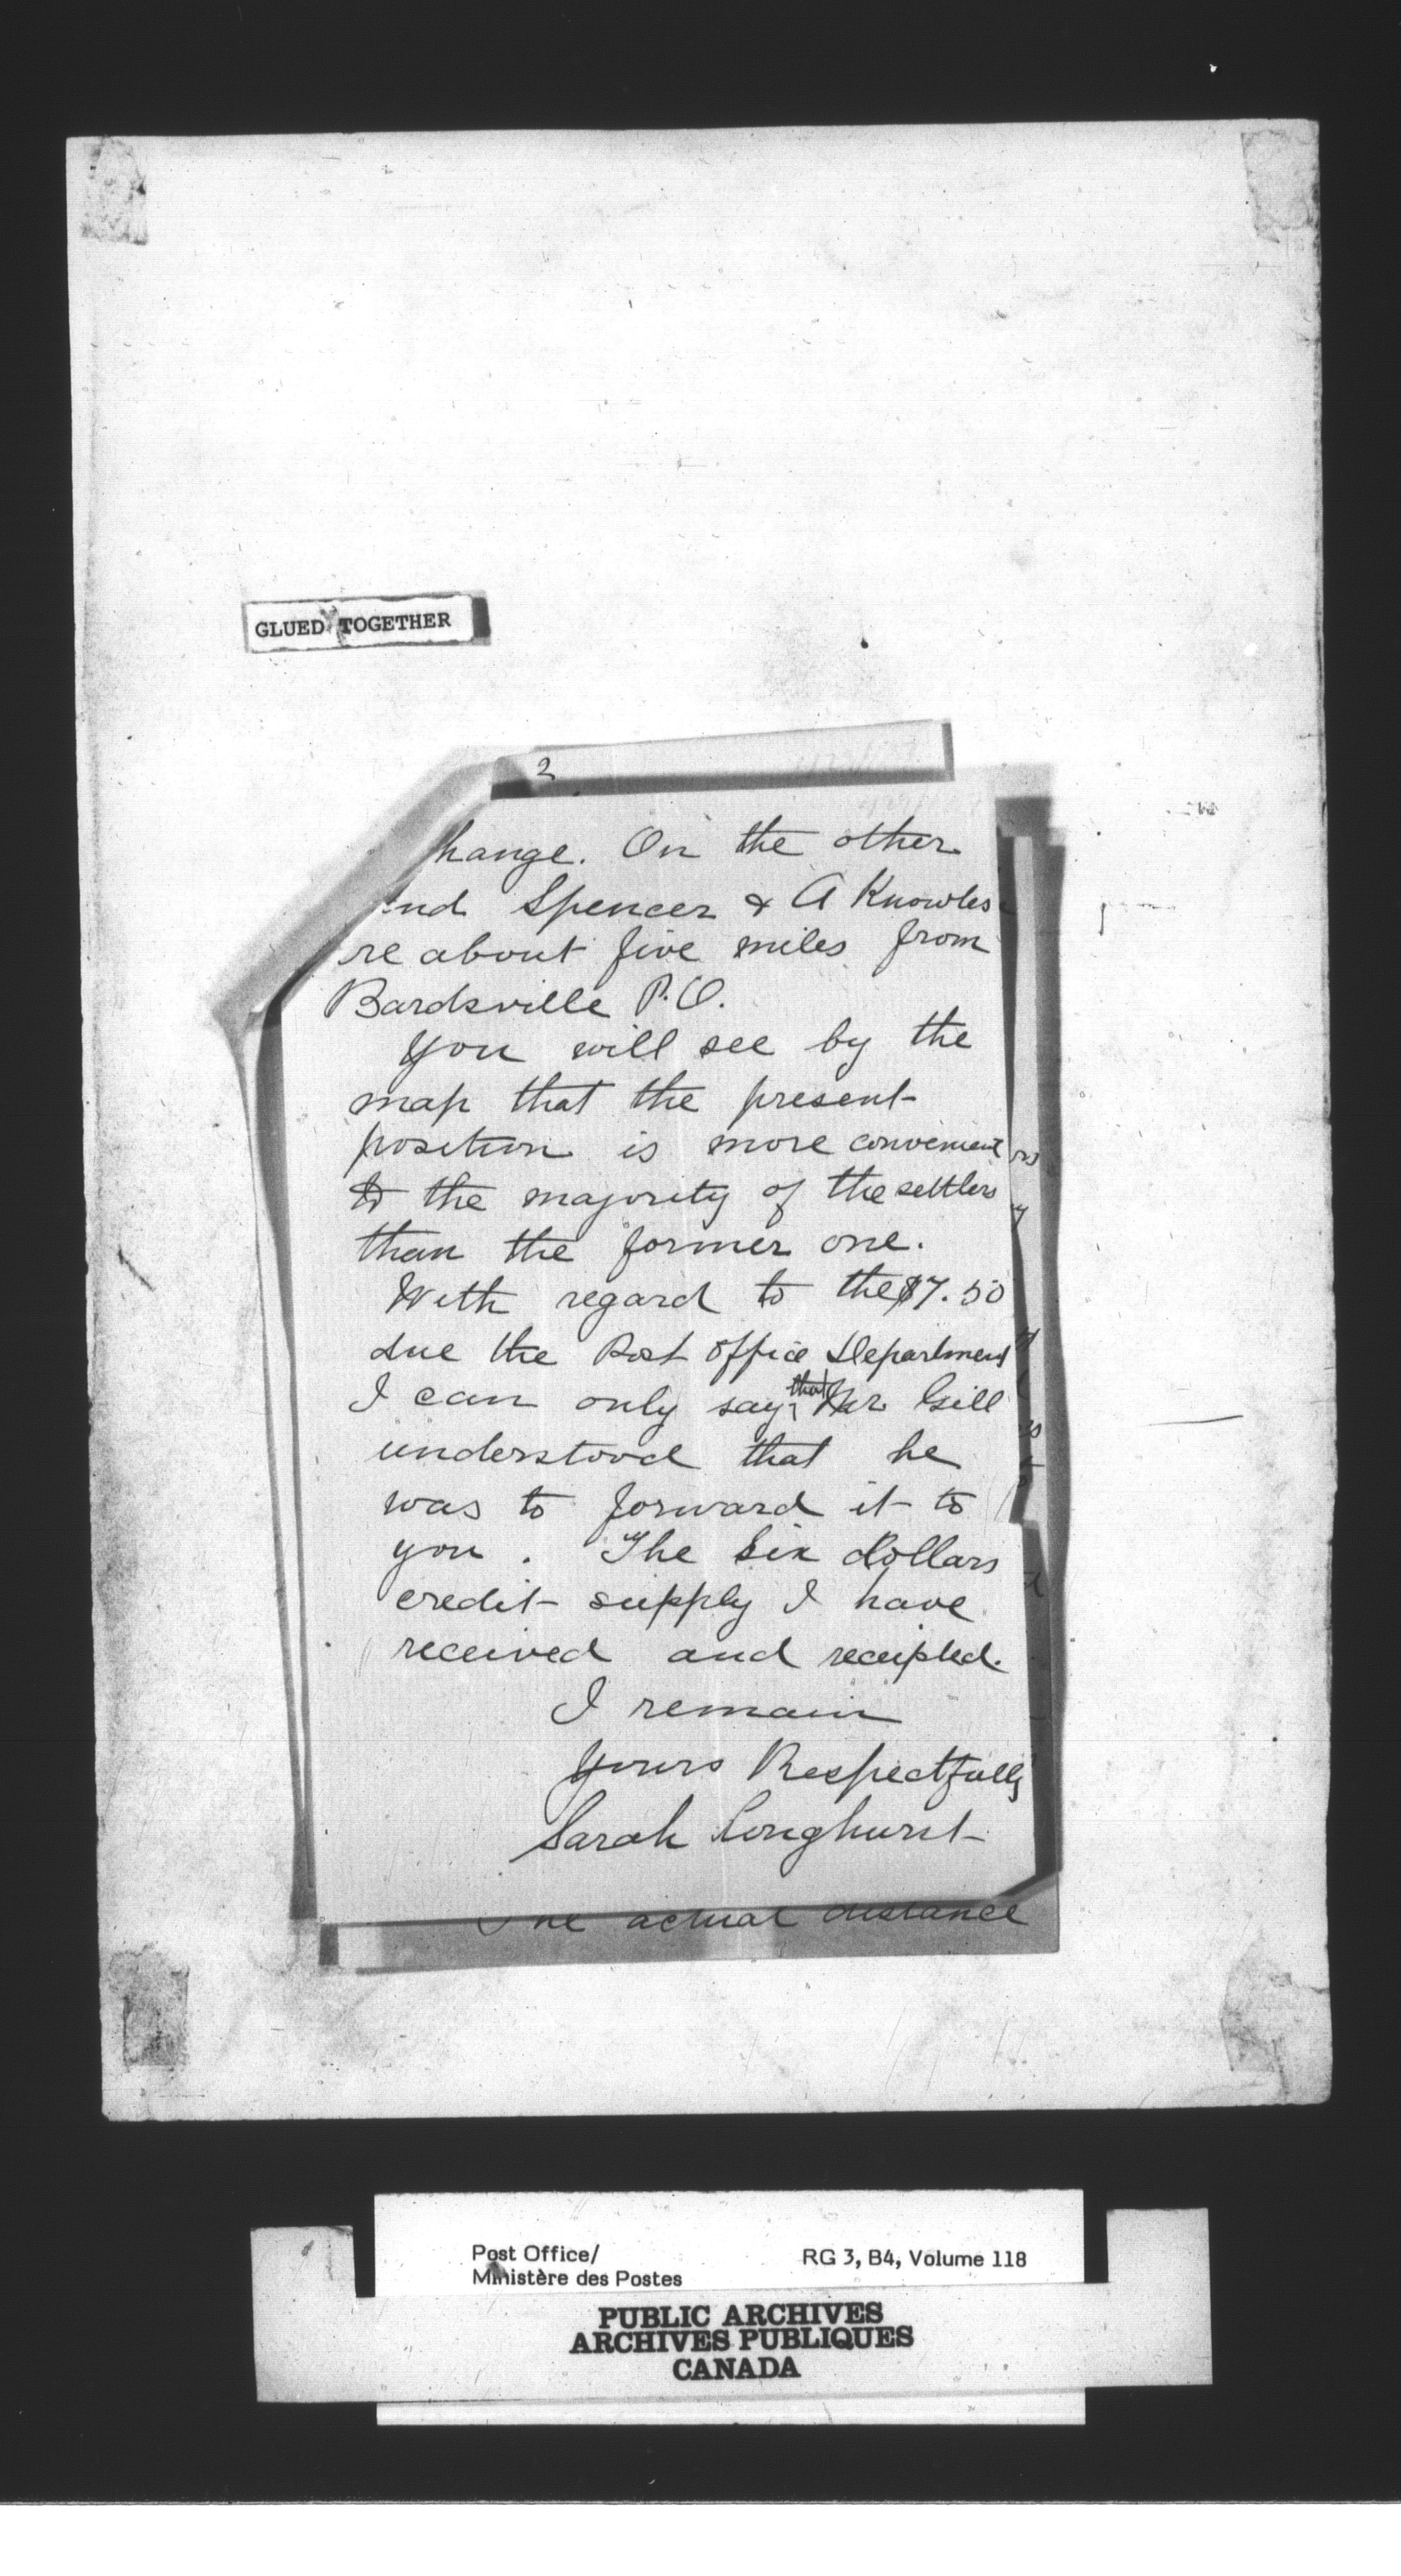 GLUED TOGETHER
2
hange. On the other
end Spencer & A Knowles
re about five miles from
Bardsville P.O.
You will see by the
map that the present
position is more convenient
to the majority of the settlers
than the former one.
With regard to the $7.50
due the Post Office Department
I can only say that Mr Gill
understood that he
was to forward it to
you. The six dollars
credit supply I have
received and receipted.
I remain
Yours Respectfully
Sarah Longhurst
The actual distance
Post Office/
Ministère des Postes
RG 3, B4, Volume 118
PUBLIC ARCHIVES
ARCHIVES PUBLIQUES
CANADA